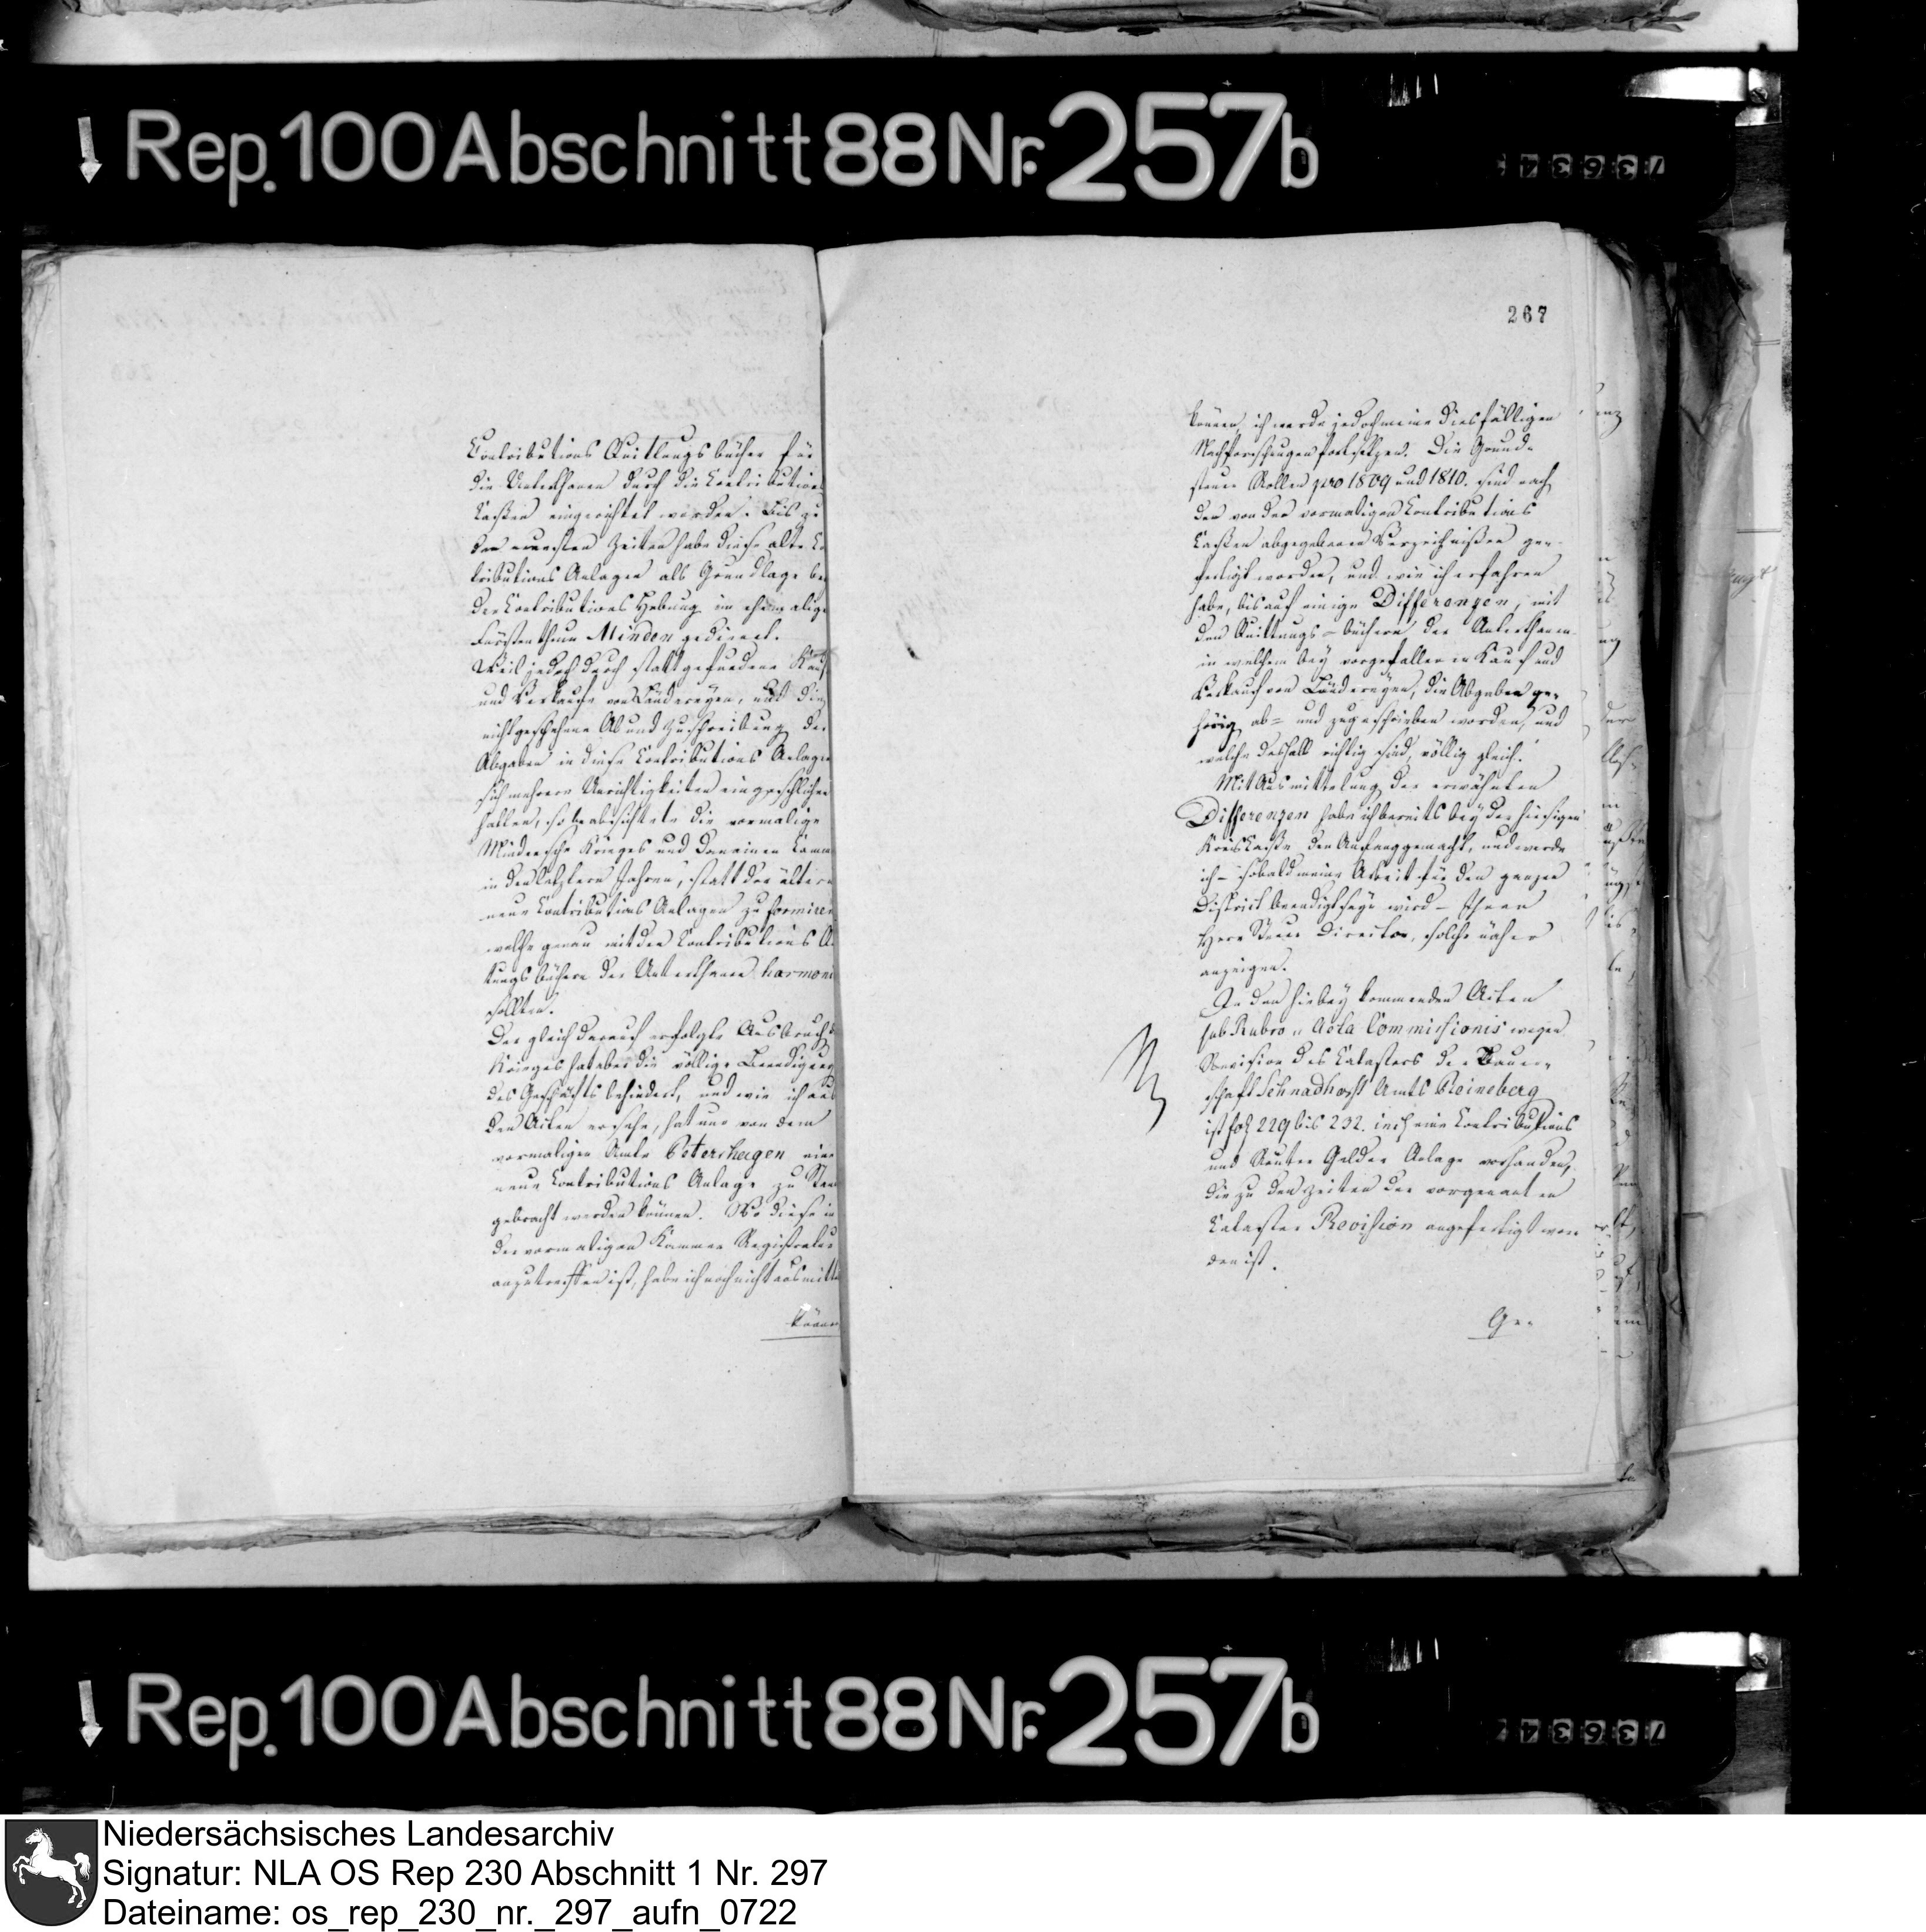 Rep. 100 Abschnitt 88 Nr. 257b
73634
Contributions Quittungsbücher für
die Unterthanen durch die Contributions
Cassen eingerichtet worden. Bis zu
den neuesten Zeiten haben diese alte Co
tributions Anlagen als Grundlage bey
der Contributions Hebung im ehemalige
Fürstenthum Minden gedienet.
Weil jedoch durch stattgefundene Kauf
und Verkäufe von Ländereyen, und die
nichtgeschehene Ab und Zuschreibung der
Abgaben in diese Contributions Anlagen
sich mehrere Unrichtigkeiten eingeschlichen
hatten, so beabsichtete die vormalige
Mindensche Krieges und Domainen Camm
in den letztern Jahren, statt der ältern
neue Contributions Anlagen zu formiren
welche genau mit den Contributions
tungsbüchern der Unterthanen harmoni
sollten.
Der gleich darauf erfolgte Ausbruch
Krieges hat aber die völlige Beendigung
des Geschäfts behindert, und wie ich aus
den Acten ersehe, hat nur von dem
vormaligen Amte Petershagen eine
neue Contributions Anlage zu Stan
gebracht werden können. Wo diese in
der vormaligen Kammer Registratur
anzutreffen ist, habe ich noch nicht ausmitt
könn
267
können, ich werde jedoch meine diesfälligen
Nachforschungen fortsetzen. Die Grund-
steuer Rollen pro 1809 und 1810. sind nach
den von der vormaligen Contributions
Cassen abgegebenen Verzeichnissen ge-
fertigt worden, und wie ich erfahren
habe, bis auf einige Differenzen, mit
den Quittungs-büchern der Unterthanen
in welchem bey vorgefallenen Kauf und
Verkauf von Ländereyen, die Abgaben ge-
hörig ab- und zugeschrieben worden, und
welche deshalb richtig sind, völlig gleich.
Mit Ausmittelung der erwähnten
Differenzen habe ich bereits bey der hiesigen
Kreis Casse den Anfang gemacht, und werde
ich - sobald meine Arbeit für den ganzen
District beendigt seyn wird - Ihnen
Herr Steuer Director, solche näher
anzeigen.
In den hiebey kommenden Acten
sub Rubro " Acta Commissionis wegen
Revision des Catasters der Bauer-
schaft Schnadhorst Amts Reineberg
ist fol 229 bis 232. eine Contributions
und Reuter Gelder Anlage vorhanden,
die zu den Zeiten der vorgenanten
Cataster Revision angefertigt wor-
den ist.
Ge-
Rep. 100 Abschnitt 88 Nr. 257b
73634
Niedersächsisches Landesarchiv
Signatur: NLA OS Rep 230 Abschnitt 1 Nr. 297
Dateiname: os_rep_230_nr._297_aufn_0722